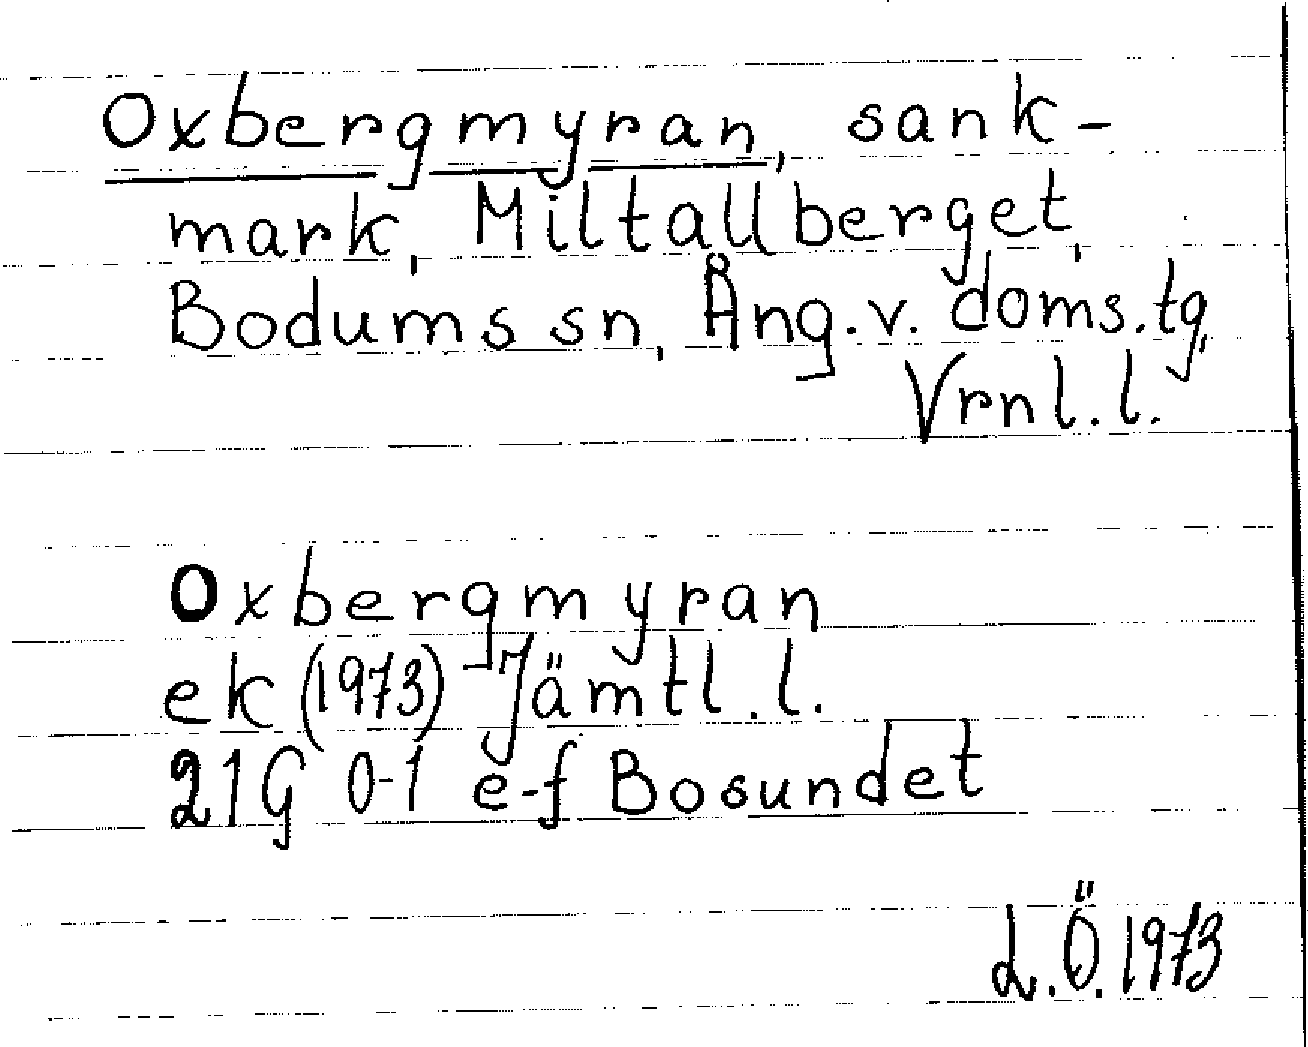 Oxbergmyran, sank-
mark, Miltallberget,
Bodums sn, Ång.v. doms.tg,
Vrnl.l.
Oxbergmyran
ek (1973) Jämtl.l.
21G 0-1 e-f Bosundet
L.Ö.1973